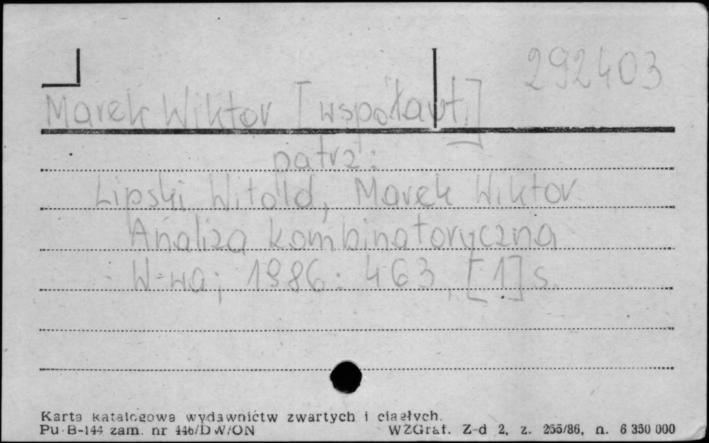 292403
Marek Wiktor [współaut.]
patrz:
Lipski Witold, Marek Wiktor
Analiza kombinatoryczna
W-wa; 1986. 463, [1] s.
Karta katalogowa wydawnictw zwartych i ciągłych.
Pu-B-144 zam. nr 446/DW/ON WZGraf. Z-d 2, z. 255/86, n. 6 350 000